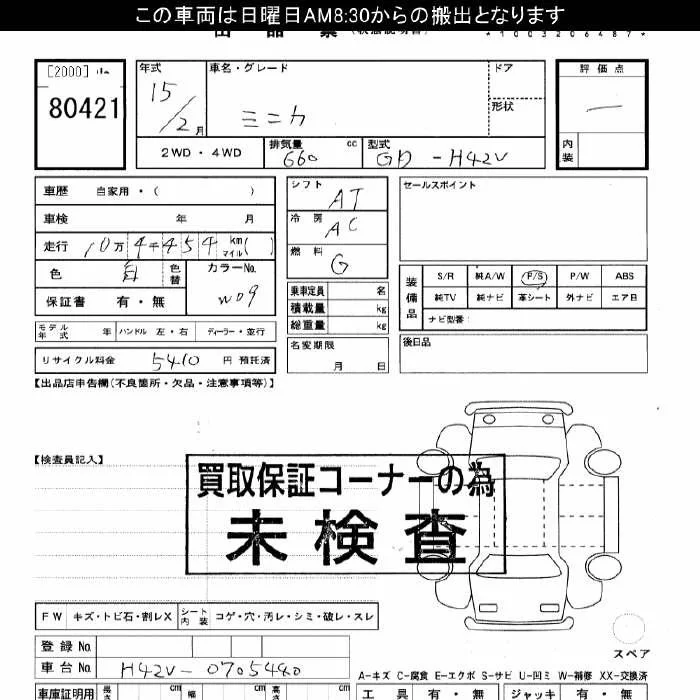 この車両は日曜日AM8:30からの搬出となります
出 品 票
*1003206487*
[2000]
80421
年式
15/2月
車名・グレード
ミニカ
ドア
形状
評価点
内装
2WD・4WD
排気量 660 cc
型式 GD-H42V
車歴 自家用・( )
車検 年 月
走行 10万4千454 km マイル( )
色 白 色替
カラーNo. W09
保証書 有・無
シフト AT
冷房 AC
燃料 G
乗車定員 名
積載量 kg
総重量 kg
セールスポイント
装備品
S/R 純A/W P/S P/W ABS
純TV 純ナビ 革シート 外ナビ エア日
ナビ型番:
モデル年式 年 ハンドル 左・右 ディーラー・並行
名変期限 月 日
後日品
リサイクル料金 5410 円 預託済
【出品店申告欄(不良箇所・欠品・注意事項等)】
【検査員記入】
買取保証コーナーの為
未検査
FW キズ・トビ石・割レX シート内装 コゲ・穴・汚レ・シミ・破レ・スレ
スペア
登録No.
車台No. H42V-0705440
A-キズ C-腐食 E-エクボ S-サビ U-凹ミ W-補修 XX-交換済
車庫証明用 長さ cm 幅 cm 高さ cm
工具 有・無 ジャッキ 有・無